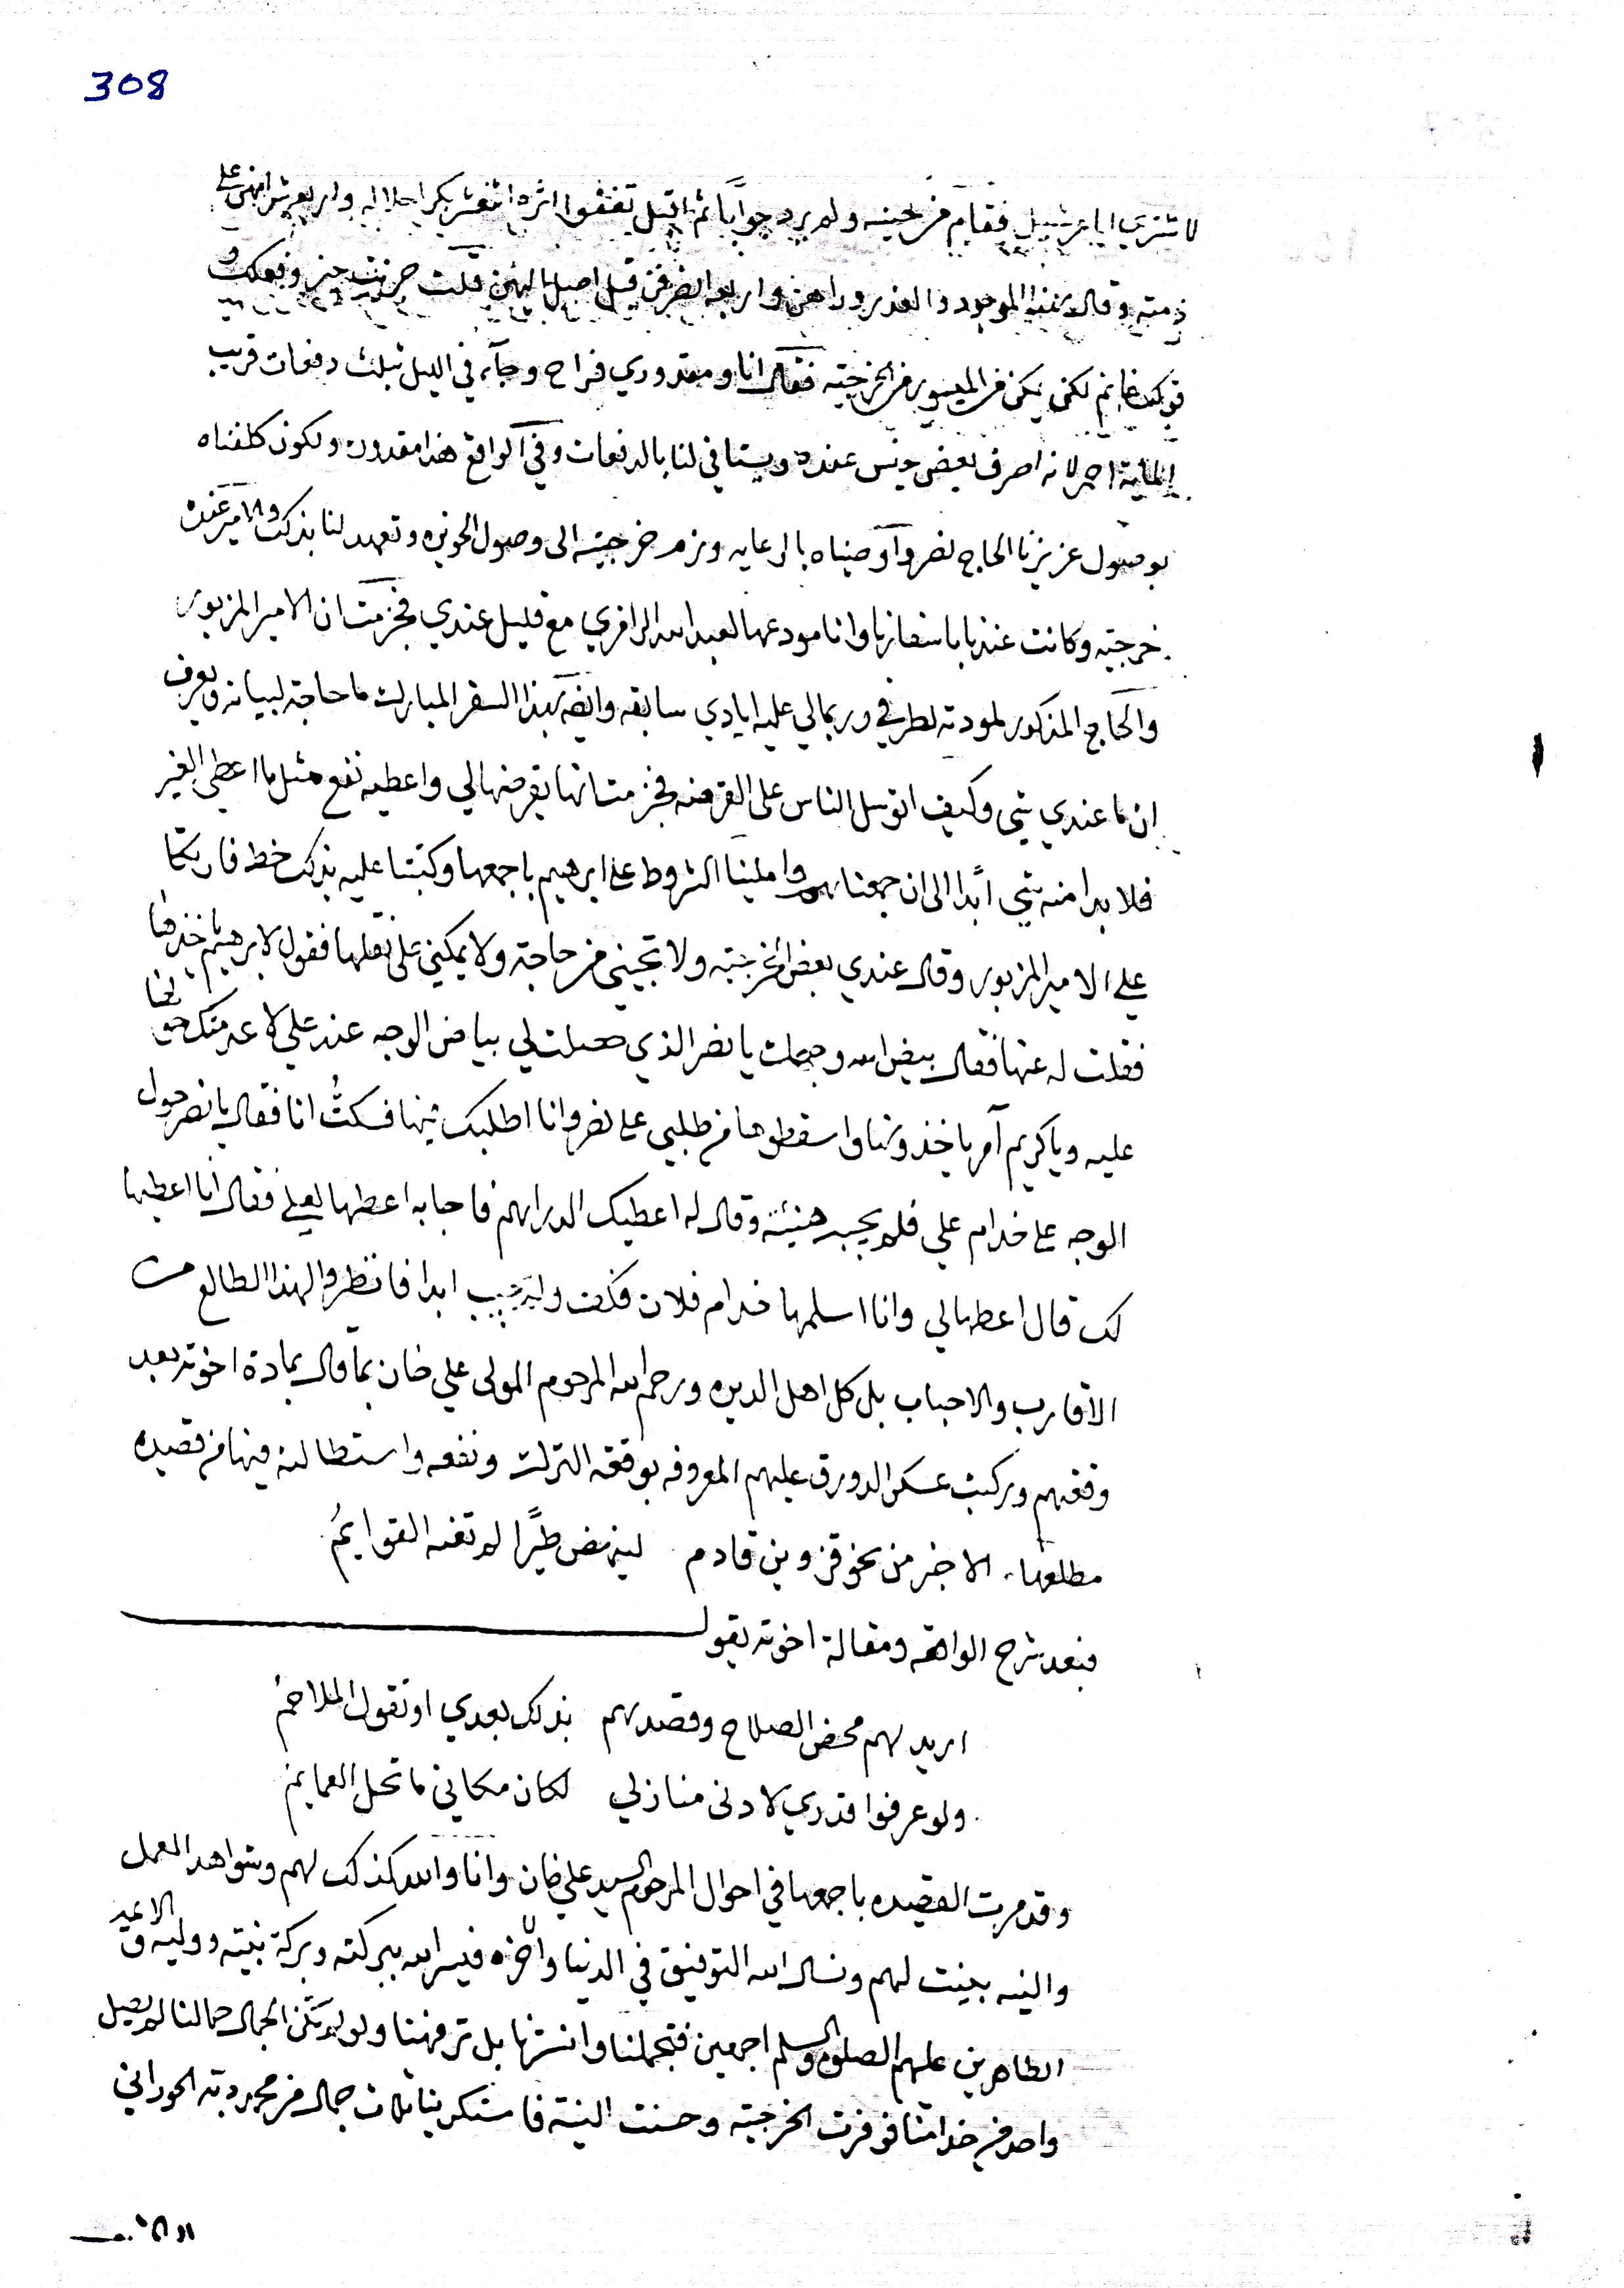 308
لا شتري اياعر شيل فقام من لحينه ولم يرد جوابا ثم اقبل تقفوا اثره اثنعشر بكرا جلاله واربعة عشر انهى على
ذمته وقال هذا الموجود والعذر وراهن واربعه انصرفن قبل اصل اليهن قلت حزيت خير وفعلك و
قولك غانم لكن يمكن من الميسور من الخرجيه فقال انا ومقدوري فراح وجآء في الليل بثلث دفعات قريب
الماية احمر لانه اصرف بعض جنس عنده ويستافي لنا بالدفعات وفي الواقع هذا مقدوره ولكون كلفناه
بوصول عزيزنا الحاج نصر واوصيناه بالرعايه ولزم خرجيته الى وصول الحويزه وتعهد لنا بذلك والامير عنده
خرجيه وكانت عندنا باسفارنا وانا مودعها لعبد الله الرافري مع قليل عندي فجزمت ان الامير المزبور
والحاج المذكور لمودته لطرفي وربما لي عليه ايادي سابقه وايضا بهذا السفر المبارك ما حاجة لبيانه ويعرف
ان ما عندي شي وكيف اتوسل الناس على القرضه فجزمت انها يقرضها لي واعطيه نفع مثل ما اعطي الغير
فلا بدا منه شي أبدا الى ان جمعناهم واملينا الشروط على ابرهيم باجمعها وكتبنا عليه بذلك خط فاربكا
على الامير المزبور وقال عندي بعض الخرجيه ولا تجيني من حاجة ولا يمكنني على نقلها فقول لابرهيم ياخذها
فقلت له عنها فقال بيض الله وجهك يا نصر الذي حصلت لي بياض الوجه عند علي لا عدمتك حق لنا
عليه ويا كريم آمر ياخذونها واسقطوها من طلبي على نصر وانا اطلبك ثمنها فسكتُ انا فقال يا نصر حول
الوجه على خدام علي فلم يجب هنيئة وقال له اعطيك الدراهم فاجابه اعطها لعلي فقال انا اعطيها
لك قال اعطها لي وانا اسلمها خدام فلان فكفت ولم يجيب ابدا فانظروا لهذا الطالع من
الاقارب والاحباب بل كل اهل الديره ورحم الله المرحوم المولى علي خان بما قال بمادة اخوته بعد
وقعتهم وركبت عسكر الدورق عليهم المعروفه بوقعة الترك ونفعه واستطالته فيها من قصيده
مطلعها. الا خبر من نحو قزوين قادم   لينهض طيرًا لم تعنه القوايمُ
فبعد شرح الواقعه ومقالة اخوته يقول
اريد لهم محض الصلاح وقصدهم   بذلك بعدي او تقول الملاحم
ولو عرفوا قدري لادنى منازلي   لكان مكاني ما تحل العمايم
وقد مرت القصيده باجمعها في احوال المرحوم السيد علي خان وانا والله كذلك لهم وشواهد العمل
والنيه بينت لهم ونسال الله التوفيق في الدنيا والاخره فيسر الله ببركته وبركة نبيته ووليه و الائمه
الطاهرين عليهم الصلوة والسلم اجمعين فتجملنا وانسترنا بل ترفهنا ولو لم تكن الجمال جمالنا لم يصيل
واحد من خدامنا فوفرت الخرجيه وحسنت النية فاستكرينا ثلاث جمال من محمد بته الحوراني